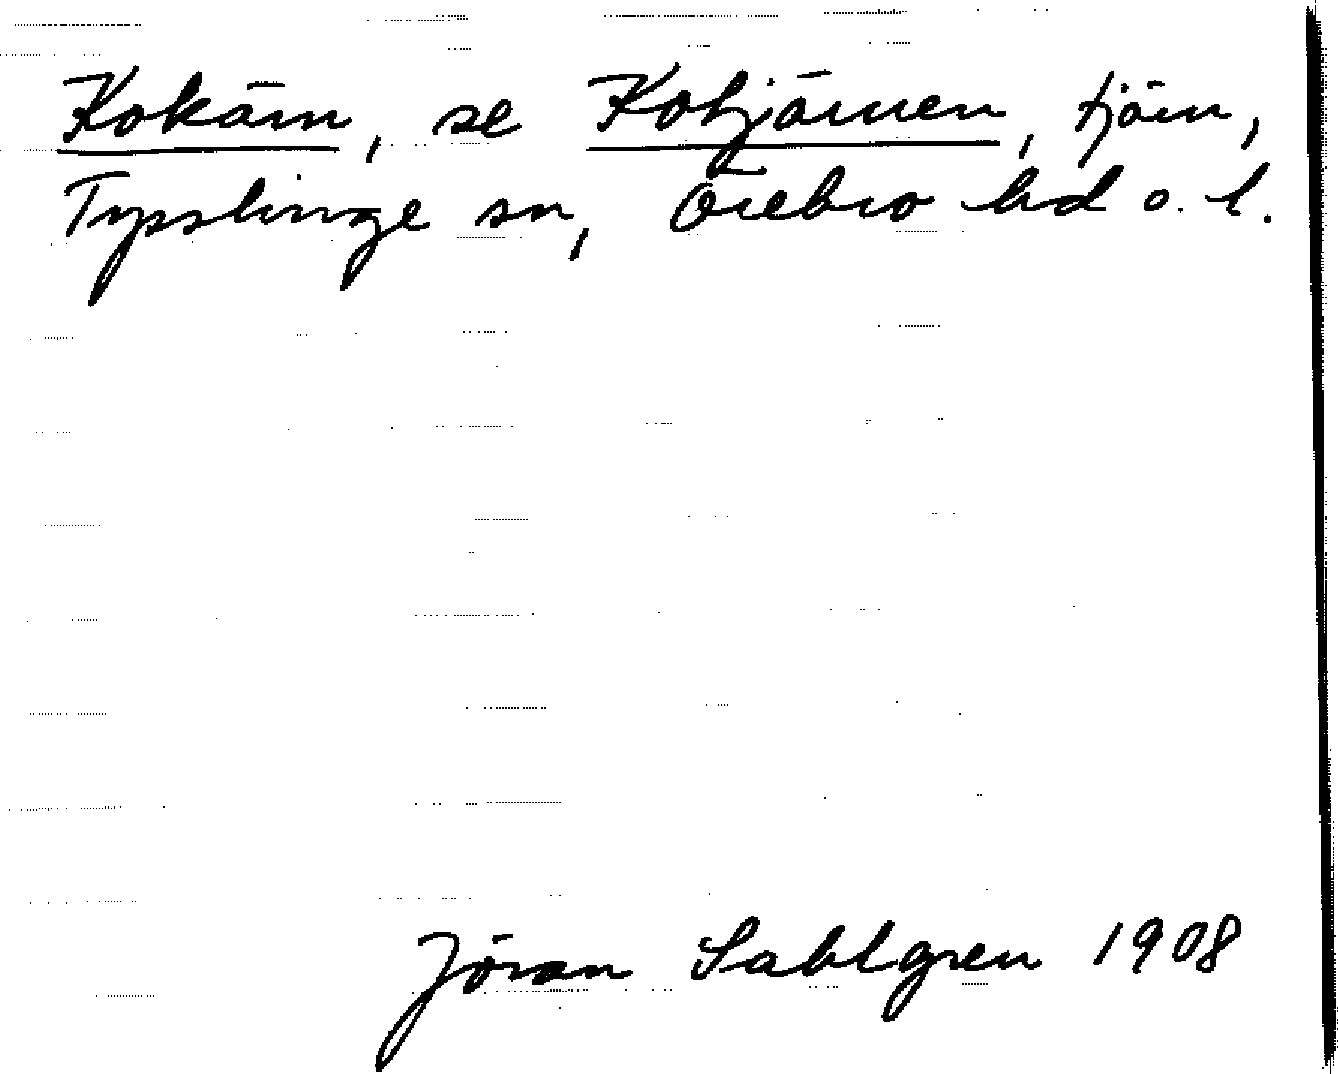 Kokärn, se Kotjärnen, tjärn,
Tysslinge sn, Örebro hd o. l.
Jöran Sahlgren 1908